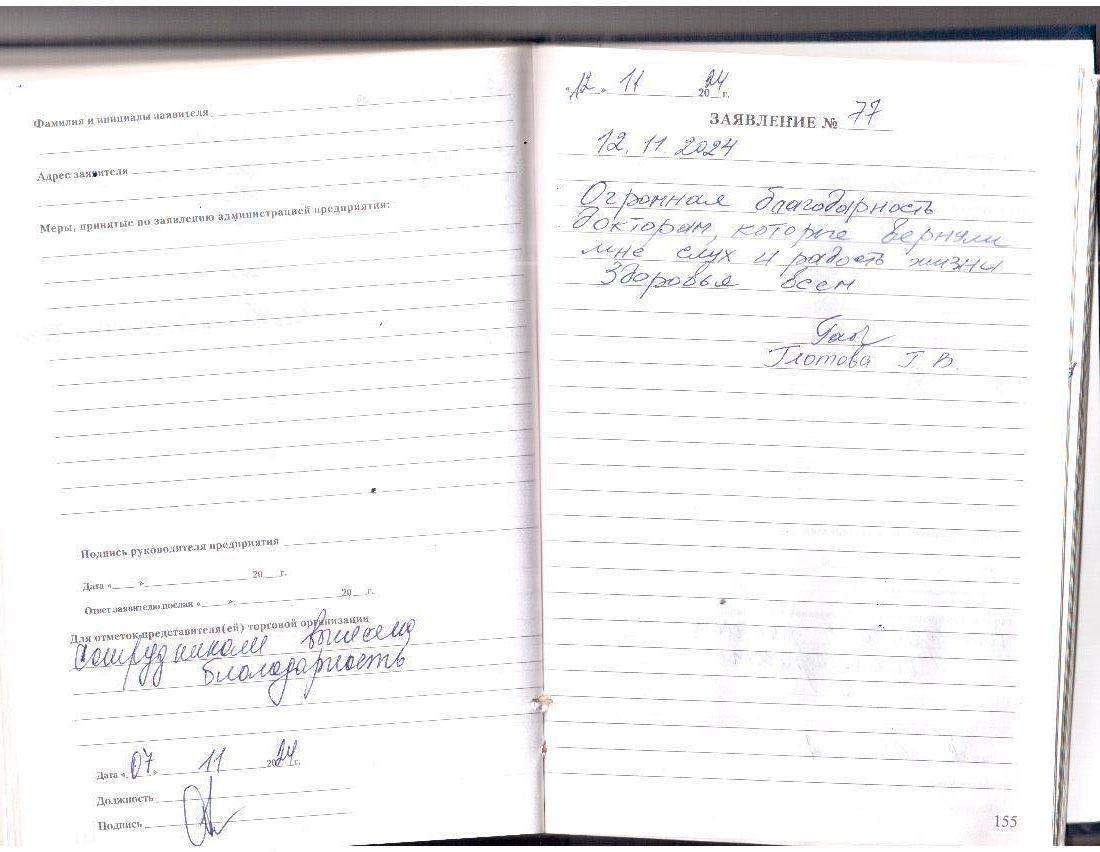 Фамилия и инициалы заявителя
Адрес заявителя
Меры, принятые по заявлению администрацией предприятия:
Подпись руководителя предприятия
Дата «____» 20__г.
Ответ заявителю послан «____» 20__г.
Для отметок представителя(ей) торговой организации
Сотрудникам вынесена
благодарность
Дата «07» 11 2024г.
Должность
Подпись
«12» 11 2024г.
ЗАЯВЛЕНИЕ № 77
12. 11 2024
Огромная благодарность
докторам, которые вернули
мне слух и радость жизни
Здоровья всем
Глотова Г. В.
155